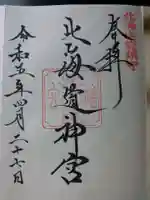 奉拝
北海道神宮
令和五年四月二十七日